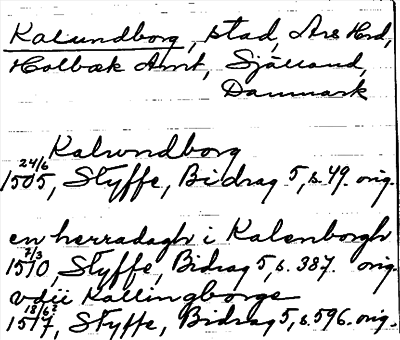 Kalundborg, stad, Ars Hrd,
Holbæk Amt, Själland,
Danmark
Kalwndborg
24/6
1505, Styffe, Bidrag 5, s. 49. orig.
en herradagh i Kalenborgh
7/3
1510, Styffe, Bidrag 5, s. 387. orig.
vdii Kallingborge
18/6
1517, Styffe, Bidrag 5, s. 596. orig.